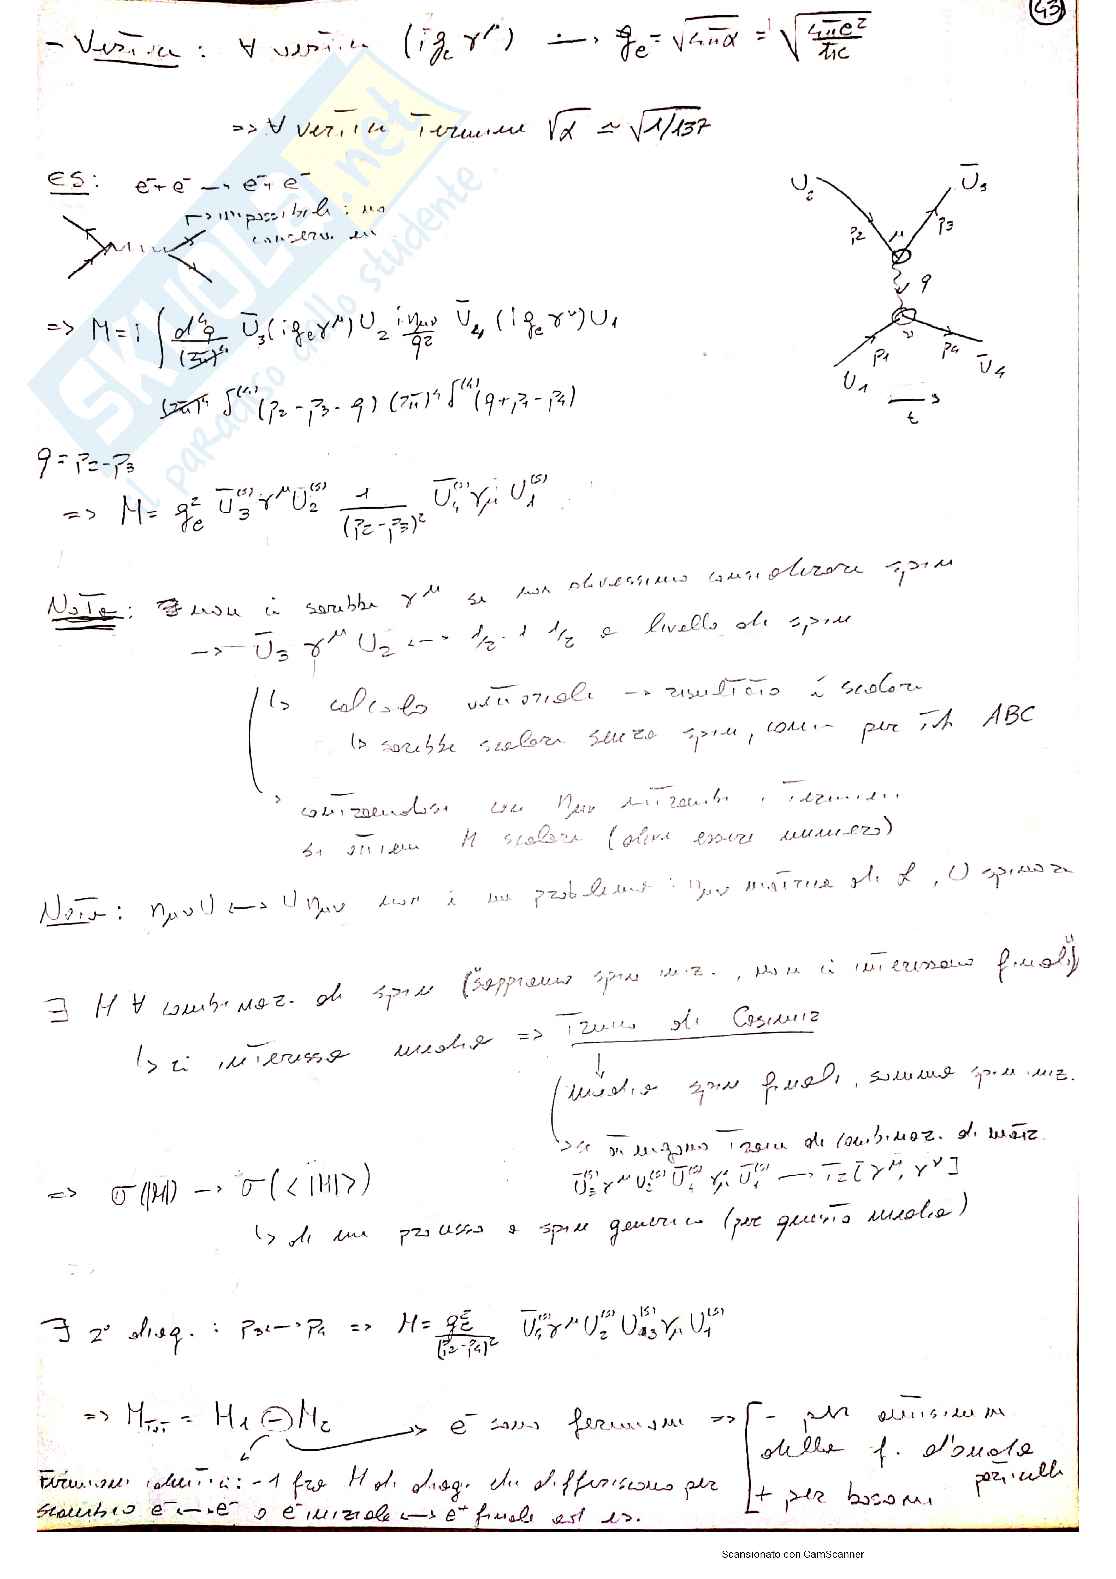 43
- Vertici : ∀ vertice (i g_e γ^μ) → g_e = √(4πα) = √(4πe²/ħc)
=> ∀ vertice termine √α ≃ √(1/137)
ES: e⁻ + e⁻ → e⁻ + e⁻
↳ impossibile : no
conserv.
U₂ Ū₃
p₂ μ p₃
q
ν
p₁ p₄
U₁ Ū₄
t
=> M = i ∫ d⁴q/(2π)⁴ Ū₃ (i g_e γ^μ) U₂ i η_μν/q² Ū₄ (i g_e γ^ν) U₁
(2π)⁴ δ⁽⁴⁾(p₂ - p₃ - q) (2π)⁴ δ⁽⁴⁾(q + p₁ - p₄)
q = p₂ - p₃
=> M = g_e² Ū₃⁽ˢ⁾ γ^μ U₂⁽ˢ⁾ 1/(p₂ - p₃)² Ū₄⁽ˢ⁾ γ_μ U₁⁽ˢ⁾
Nota : non ci sarebbe γ^μ se non dovessimo considerare spin
→ Ū₃ γ^μ U₂ ↔ 1/2 · 1 1/2 a livello di spin
↳ calcolo vettoriale → risultato è scalare
↳ sarebbe scalare senza spin, come per th ABC
contraendosi con η_μν entrambi i termini
si ottiene M scalare (deve essere numero)
Nota : η_μν U ↔ U η_μν non è un problema : η_μν matrice di L, U spinori
∃ M ∀ combinaz. di spin ("sappiamo spin iniz., non ci interessano finali")
↳ ci interessa media => Trucco di Casimir
(media spin finali, somma spin iniz.
→ si ottengono tracce di combinaz. di matr.
Ū₃⁽ˢ⁾ γ^μ U₂⁽ˢ⁾ Ū₄⁽ˢ⁾ γ_μ U₁⁽ˢ⁾ → Tr[γ^μ, γ^ν]
=> σ(|M|) → σ(<|M|>)
↳ di un processo a spin generico (per questo media)
∃ 2° diag. : p₃ ↔ p₄ => M = g_e²/(p₂-p₄)² Ū₄⁽ˢ⁾ γ^μ U₂⁽ˢ⁾ Ū₃⁽ˢ⁾ γ_μ U₁⁽ˢ⁾
=> M_TOT = M₁ ⊖ M₂ → e⁻ sono fermioni => [ - per antisimm
della f. d'onda
particelle
+ per bosoni
Fermioni identici : -1 fra M di diag. che differiscono per
scambio e⁻ ↔ e⁻ o e⁻ iniziale ↔ e⁺ finale ad es.
SKUOLA.net
il paradiso dello studente
Scansionato con CamScanner